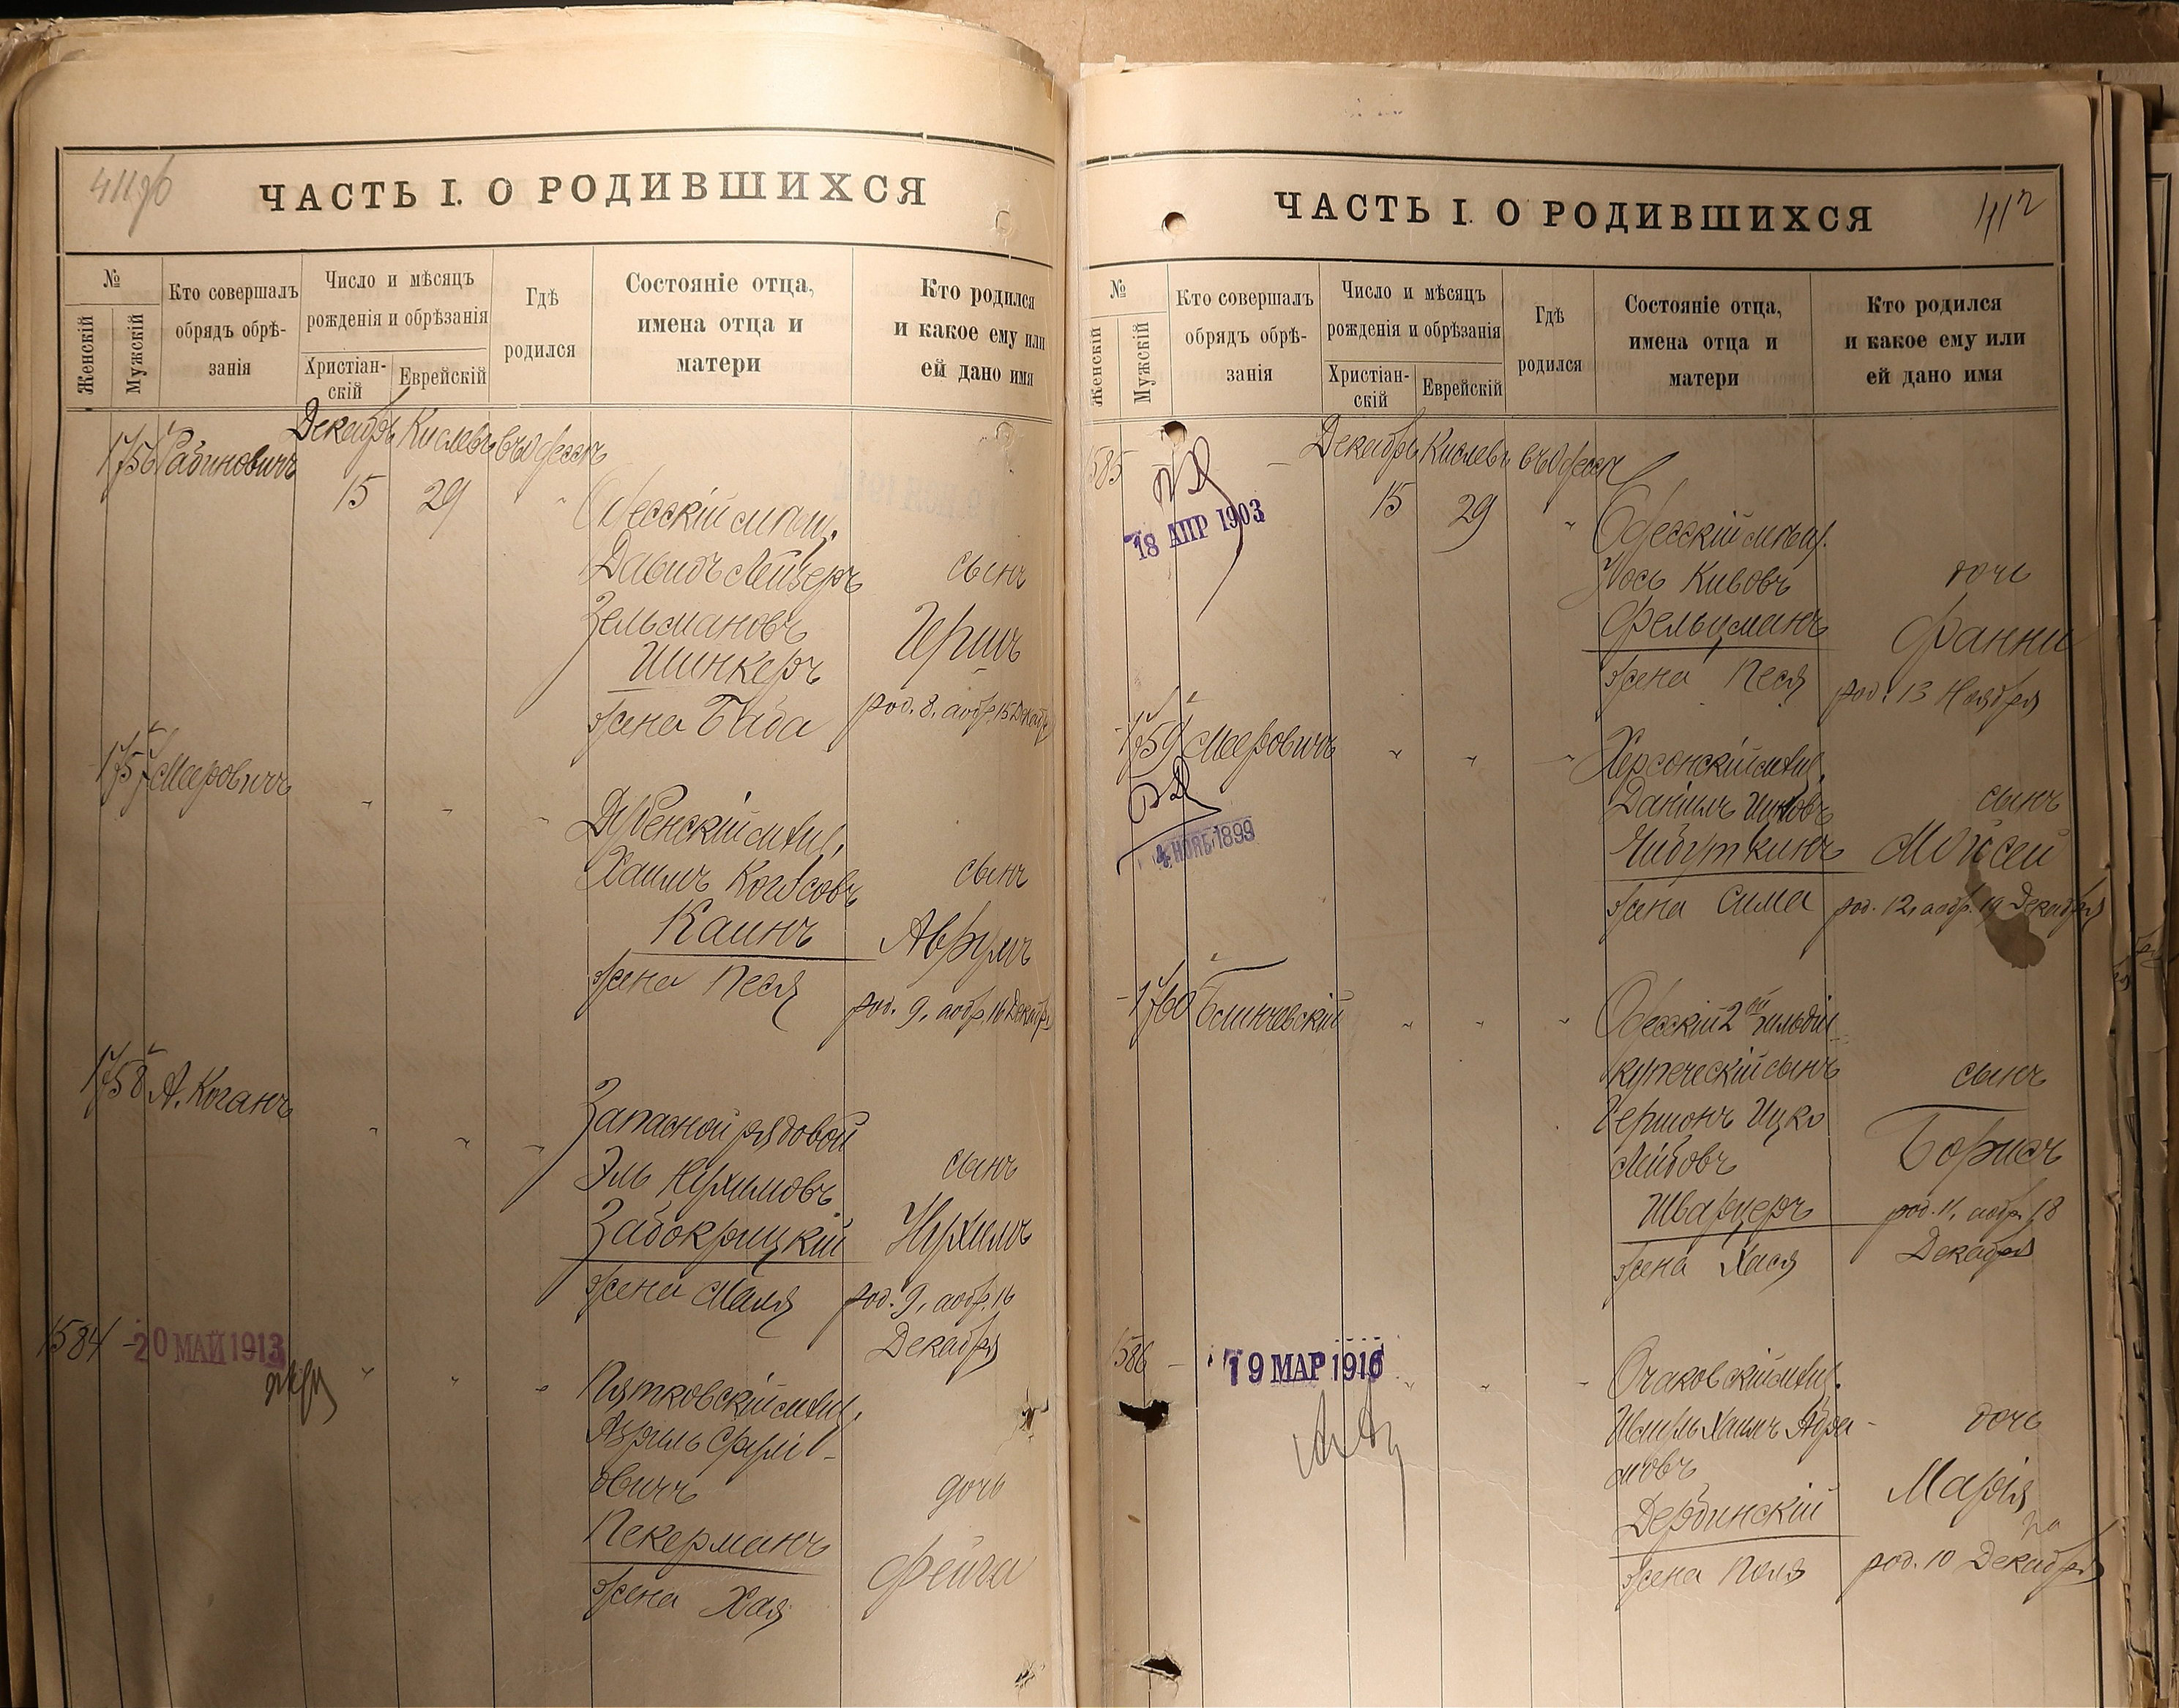 ЧАСТЬ I. О РОДИВШИХСЯ
№
Женскій
Мужскій
Кто совершалъ
обрядъ обрѣ-
занія
Число и мѣсяцъ
рожденія и обрѣзанія
Христіан-
скій
Еврейскій
Гдѣ
родился
Состояніе отца,
имена отца и
матери
Кто родился
и какое ему или
ей дано имя
1756 Рабиновичъ
Декабрь Кислевъ въ Одессѣ
15 29 "
Одесскій мѣщ.
Давидъ Лейзеръ
Зельмановъ
Шинкеръ
жена Баба
сынъ
Гершъ
род. 8, а обр. 15 Декабр
1757 Мееровичъ
" " "
Дубенскій мѣщ.
Хаимъ
Каинъ
жена Песя
сынъ
Аврумъ
род. 9, а обр. 16 Декабр
1758 А. Коганъ
" " "
Запасной рядовой
Эль Нухимовъ
Забокрицкій
жена Маля
сынъ
Нухимъ
род. 9, а обр. 16
Декабря
1584 -
20 МАЙ 1913
" " "
Пятковскій мѣщ.
Азриль
овичъ
Пекерманъ
жена Хая
дочь
Фейга
ЧАСТЬ I. О РОДИВШИХСЯ
412
№
Женскій
Мужскій
Кто совершалъ
обрядъ обрѣ-
занія
Число и мѣсяцъ
рожденія и обрѣзанія
Христіан-
скій
Еврейскій
Гдѣ
родился
Состояніе отца,
имена отца и
матери
Кто родился
и какое ему или
ей дано имя
1585 -
18 АПР 1903
Декабрь Кислевъ въ Одессѣ
15 29 "
Одесскій мѣщ.
Іось Кивовъ
Фельцманъ
жена Песя
дочь
Фанни
род. 13 Ноября
1759 Мееровичъ
4 НОЯБ 1899
" " "
Херсонскій мѣщ.
Даніилъ Ицковъ
Чибуткинъ
жена Сима
сынъ
Мойсей
род. 12, а обр. 19 Декабря
1760 Блинчевскій
" " "
Одесскій 2ой гильдіи
купеческій сынъ
Гершонъ Ицко
Лейбовъ
Шварцеръ
жена Хася
сынъ
Борисъ
род. 11, а обр. 18
Декабря
1586 -
19 МАР 1916
" " "
Очаковскій мѣщ.
Шмиль Хаимъ Абра-
мовъ
Дербинскій
жена Поля
дочь
Марія
род. 10 Декабря